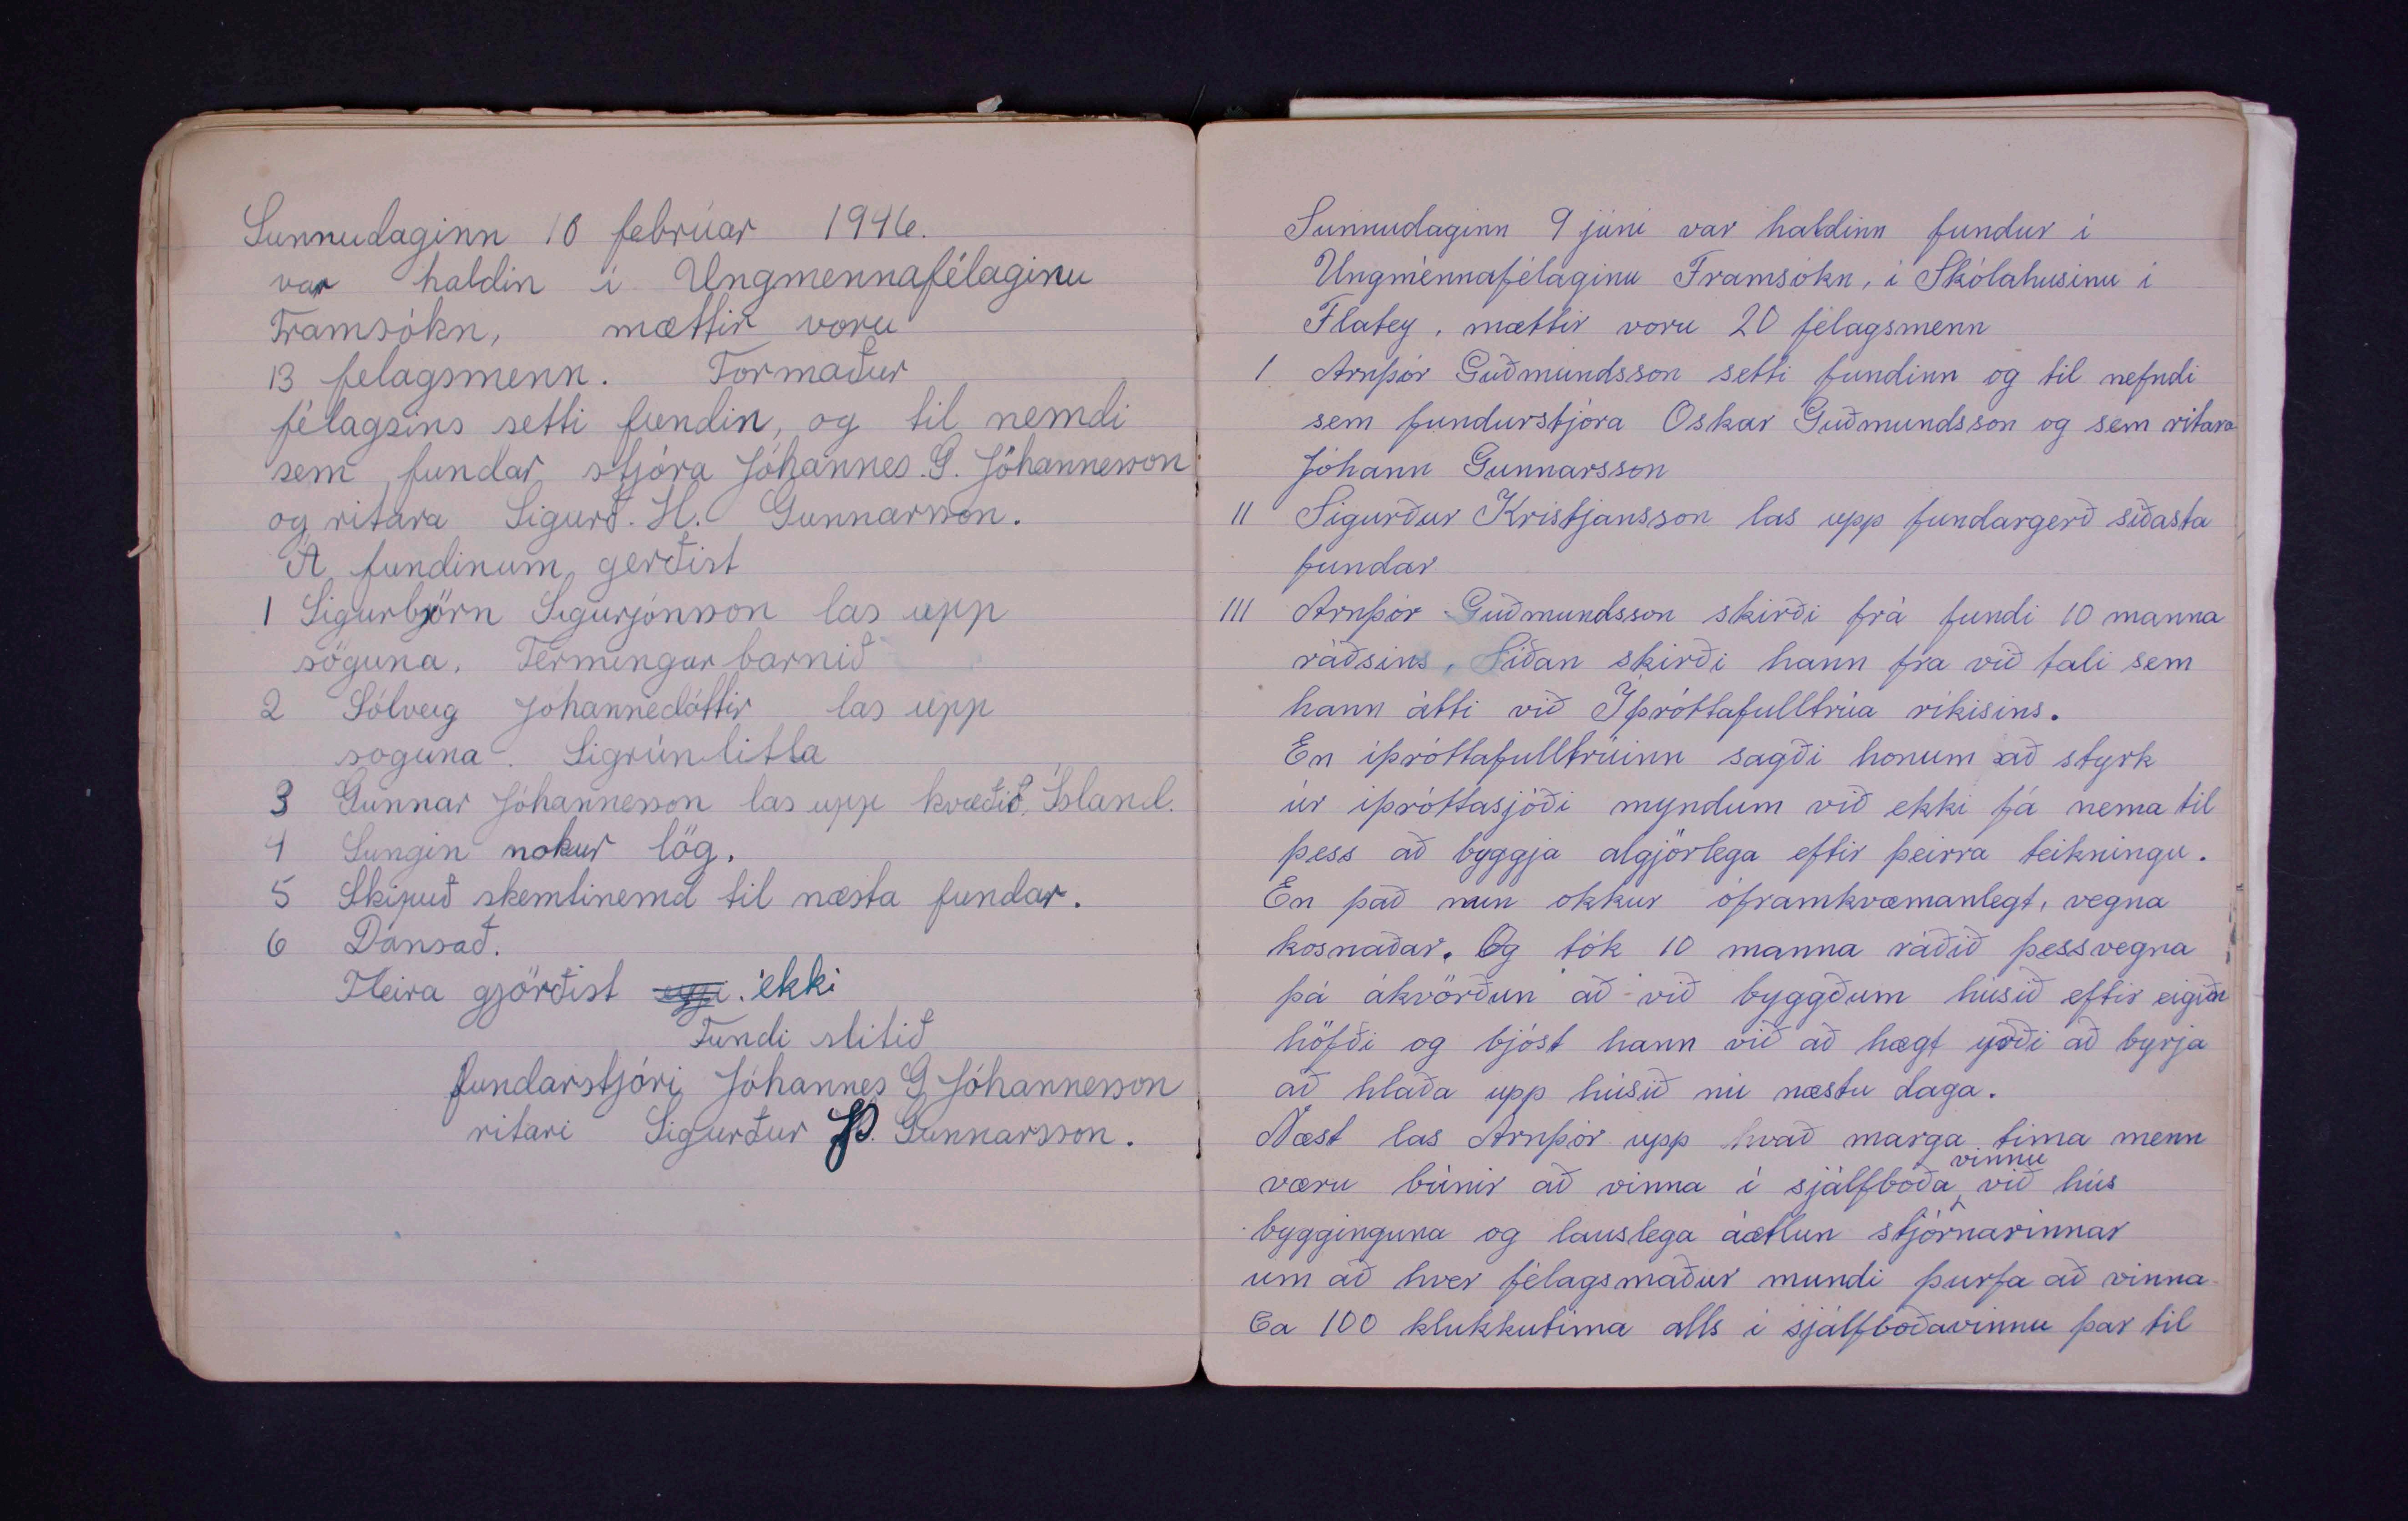 Sunnudaginn 10 februar 1946.
var haldin i Ungmennafélaginu
Framsókn, mættir voru
13 felagsmenn. Formaður
félagsins setti fundin, og til nemdi
sem fundar stjóra Jóhannes. G. Jóhannesson
og ritara Sigurð. H. Gunnarsson.
Á fundinum gerðist
1 Sigurbjörn Sigurjónsson las upp
söguna. Fermingar barnið
2 Sólveig Jóhannedóttir las upp
soguna. Sigrún litla
3 Gunnar Jóhannesson las upp kvæðið. Ísland.
4 Sungin nokur lög.
5 Skipuð skemtinemd til næsta fundar.
6 Dansað.
Fleira gjörðist ekki
Fundi slitið
fundarstjóri Jóhannes G Jóhannesson
ritari Sigurður Þ. Gunnarsson.
Sunnudaginn 9 júni var haldinn fundur i
Ungmennafélaginu Framsókn, i Skólahusinu i
Flatey, mættir voru 20 félagsmenn
I Arnþór Guðmundsson setti fundinn og til nefndi
sem fundurstjóra Oskar Guðmundsson og sem ritara
Jóhann Gunnarsson
II Sigurður Kristjansson las upp fundargerð siðasta
fundar
III Arnþór Guðmundsson skirði frá fundi 10 manna
ráðsins, Siðan skirði hann fra við tali sem
hann átti við Íþróttafulltrúa rikisins.
En iþróttafulltrúinn sagði honum að styrk
úr iþróttasjóði myndum við ekki fá nema til
þess að byggja algjörlega eftir þeirra teikningu.
En það mun okkur óframkvæmanlegt, vegna
kosnaðar. Og tók 10 manna ráðið þessvegna
þá ákvörðun að við byggðum húsið eftir eigin
höfði og bjóst hann við að hægt yrði að byrja
að hlaða upp húsið nú næstu daga.
Næst las Arnþór upp hvað marga tima menn
væru búnir að vinna i sjálfboða vinnu við hús
bygginguna og lauslega áætlun stjórnarinnar
um að hver félagsmaður mundi þurfa að vinna
Ca 100 klukkutima alls i sjálfboðavinnu þar til